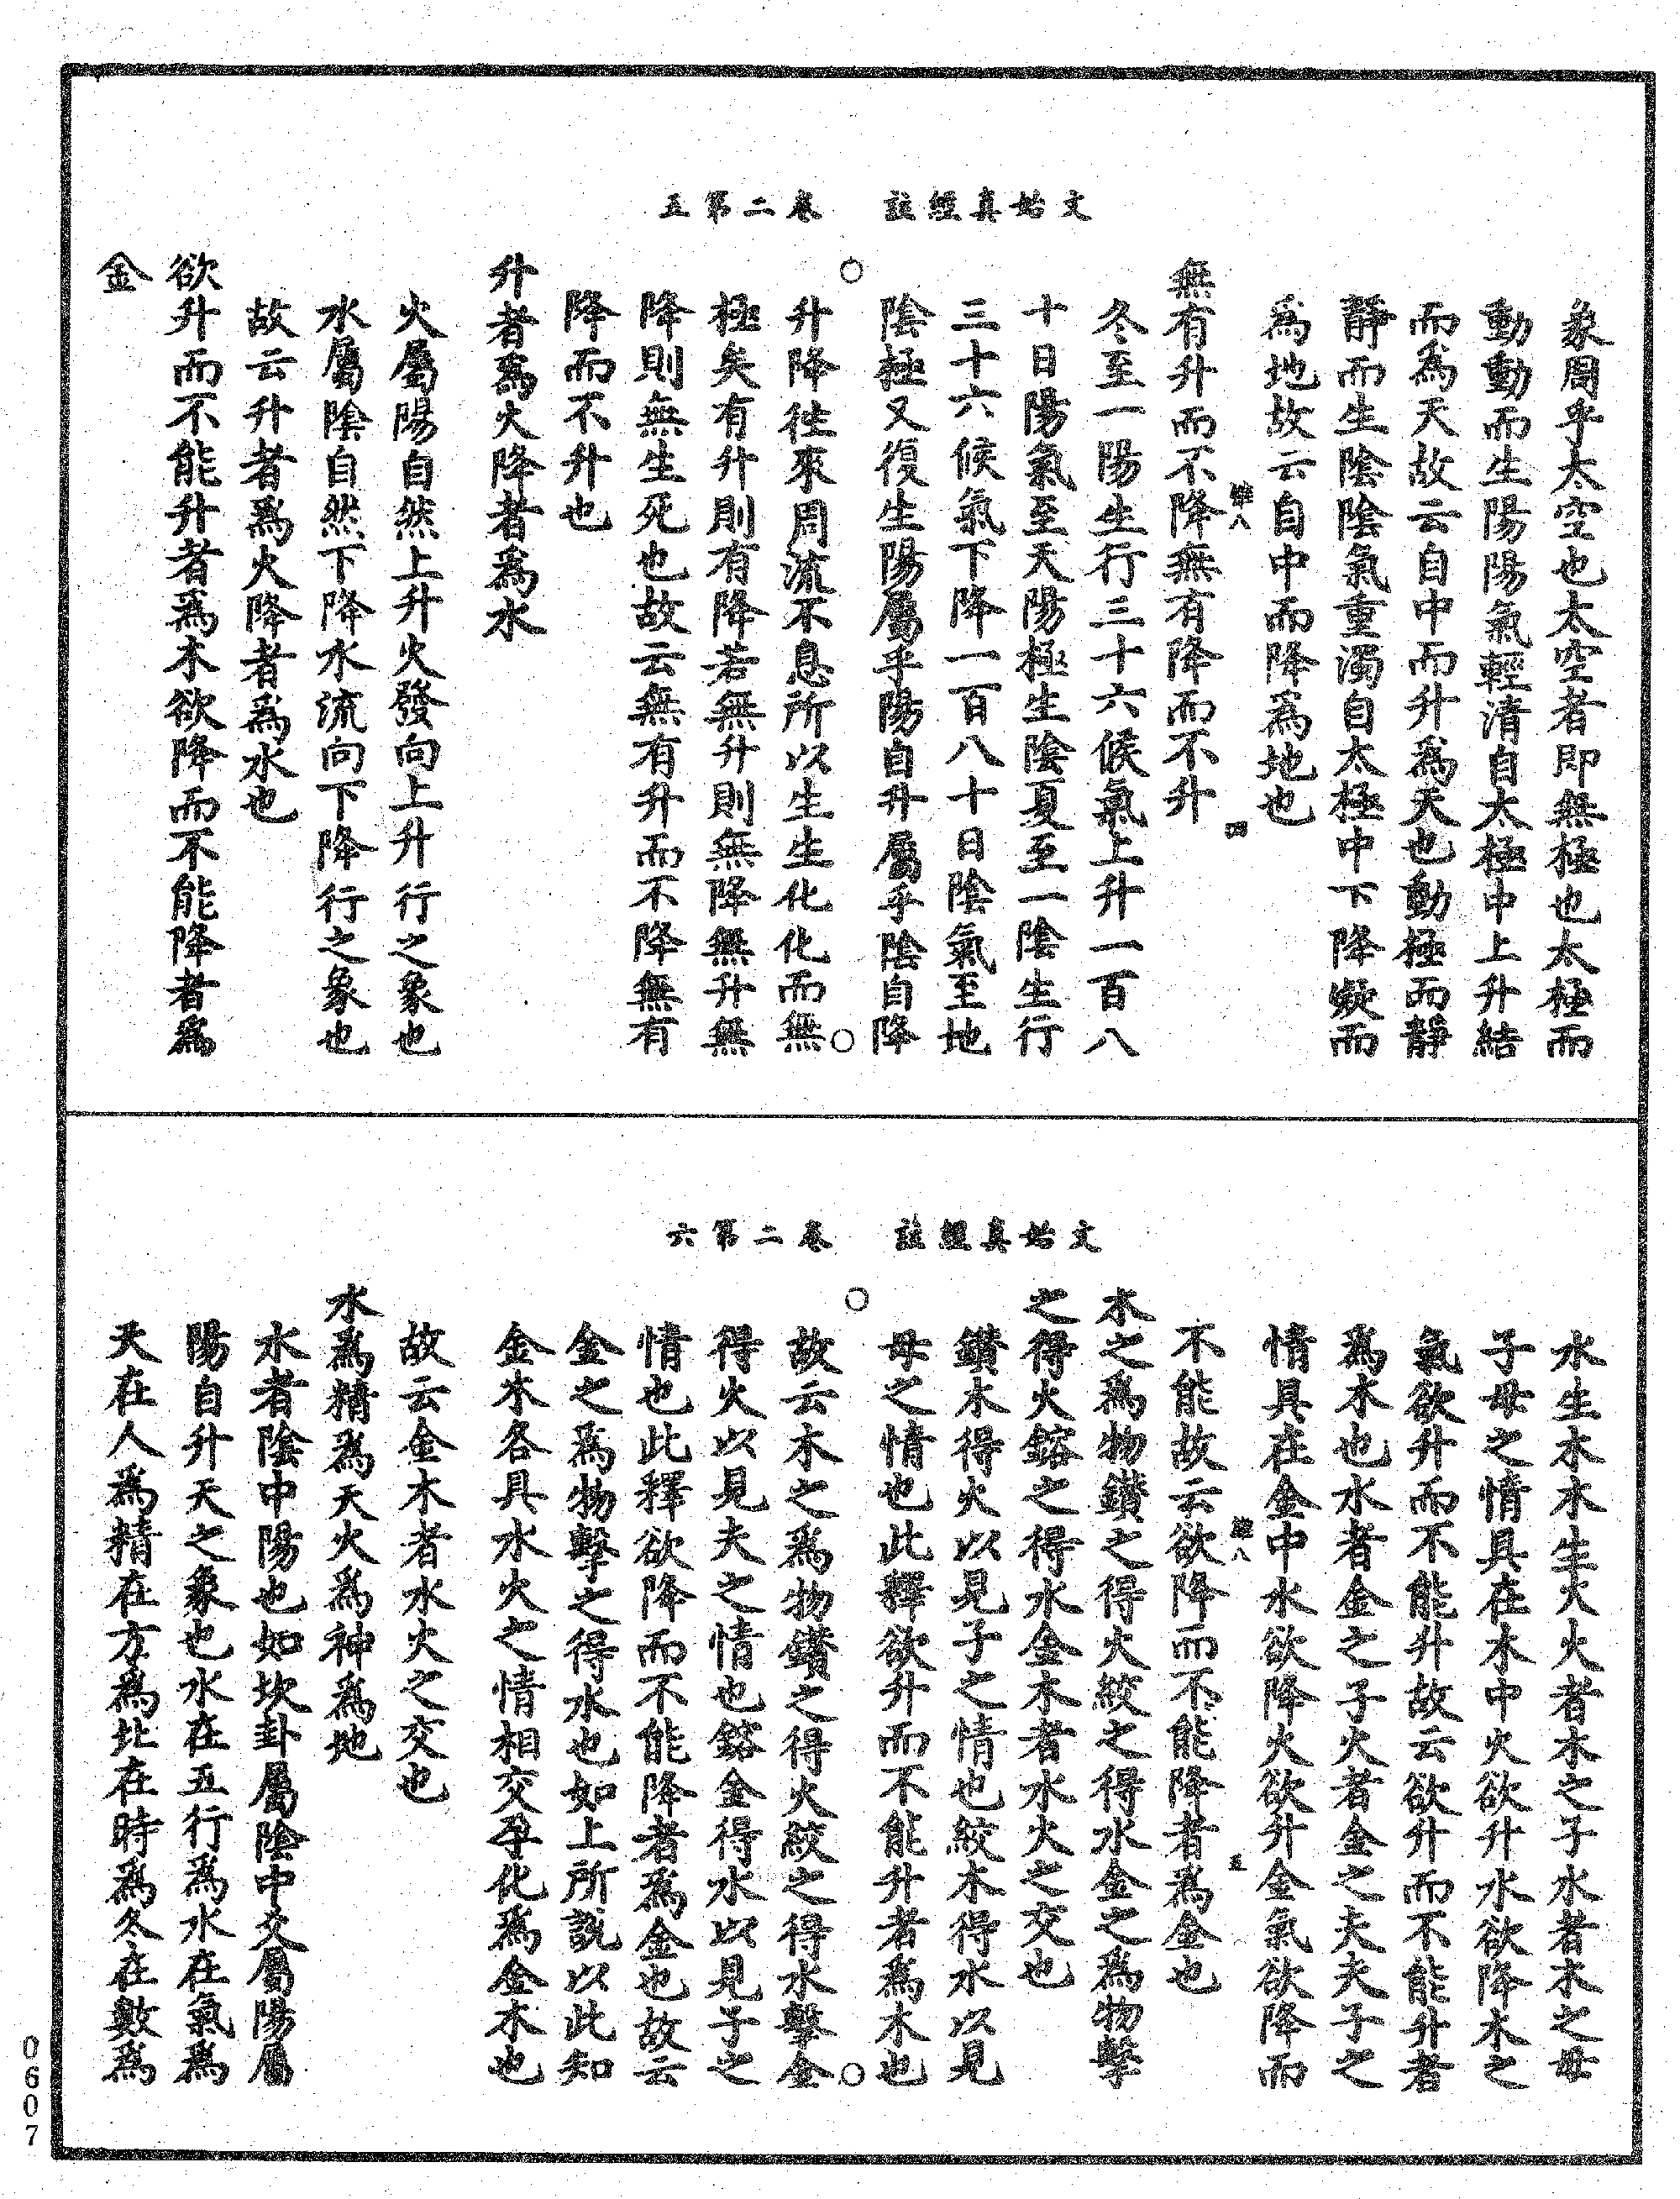 文始真經註　卷二第五
象周乎太空也太空者即無極也太極而
動動而生陽陽氣輕清自太極中上升結
而為天故云自中而升為天也動極而靜
靜而生陰陰氣重濁自太極中下降凝而
為地故云自中而降為地也
無有升而不降無有降而不升
冬至一陽生行三十六候氣上升一百八
十日陽氣至天陽極生陰夏至一陰生行
三十六候氣下降一百八十日陰氣至地
陰極又復生陽屬乎陽自升屬乎陰自降
升降徃來周流不息所以生生化化而無
極矣有升則有降若無升則無降無升無
降則無生死也故云無有升而不降無有
降而不升也
升者為火降者為水
火屬陽自然上升火發向上升行之象也
水屬陰自然下降水流向下降行之象也
故云升者為火降者為水也
欲升而不能升者為木欲降而不能降者為
金
文始真經註　卷二第六
水生木木生火火者木之子水者木之母
子母之情具在木中火欲升水欲降木之
氣欲升而不能升故云欲升而不能升者
為木也水者金之子火者金之夫夫子之
情具在金中水欲降火欲升金氣欲降而
不能故云欲降而不能降者為金也
木之為物鑽之得火絞之得水金之為物擊
之得火鎔之得水金木者水火之交也
鑽木得火以見子之情也絞木得水以見
母之情也此釋欲升而不能升者為木也
故云木之為物鑽之得火絞之得水擊金
得火以見夫之情也鎔金得水以見子之
情也此釋欲降而不能降者為金也故云
金之為物擊之得水也如上所說以此知
金木各具水火之情相交孕化為金木也
故云金木者水火之交也
水為精為天火為神為地
水者陰中陽也如坎卦屬陰中爻屬陽屬
陽自升天之象也水在五行為水在氣為
天在人為精在方為北在時為冬在數為
0607